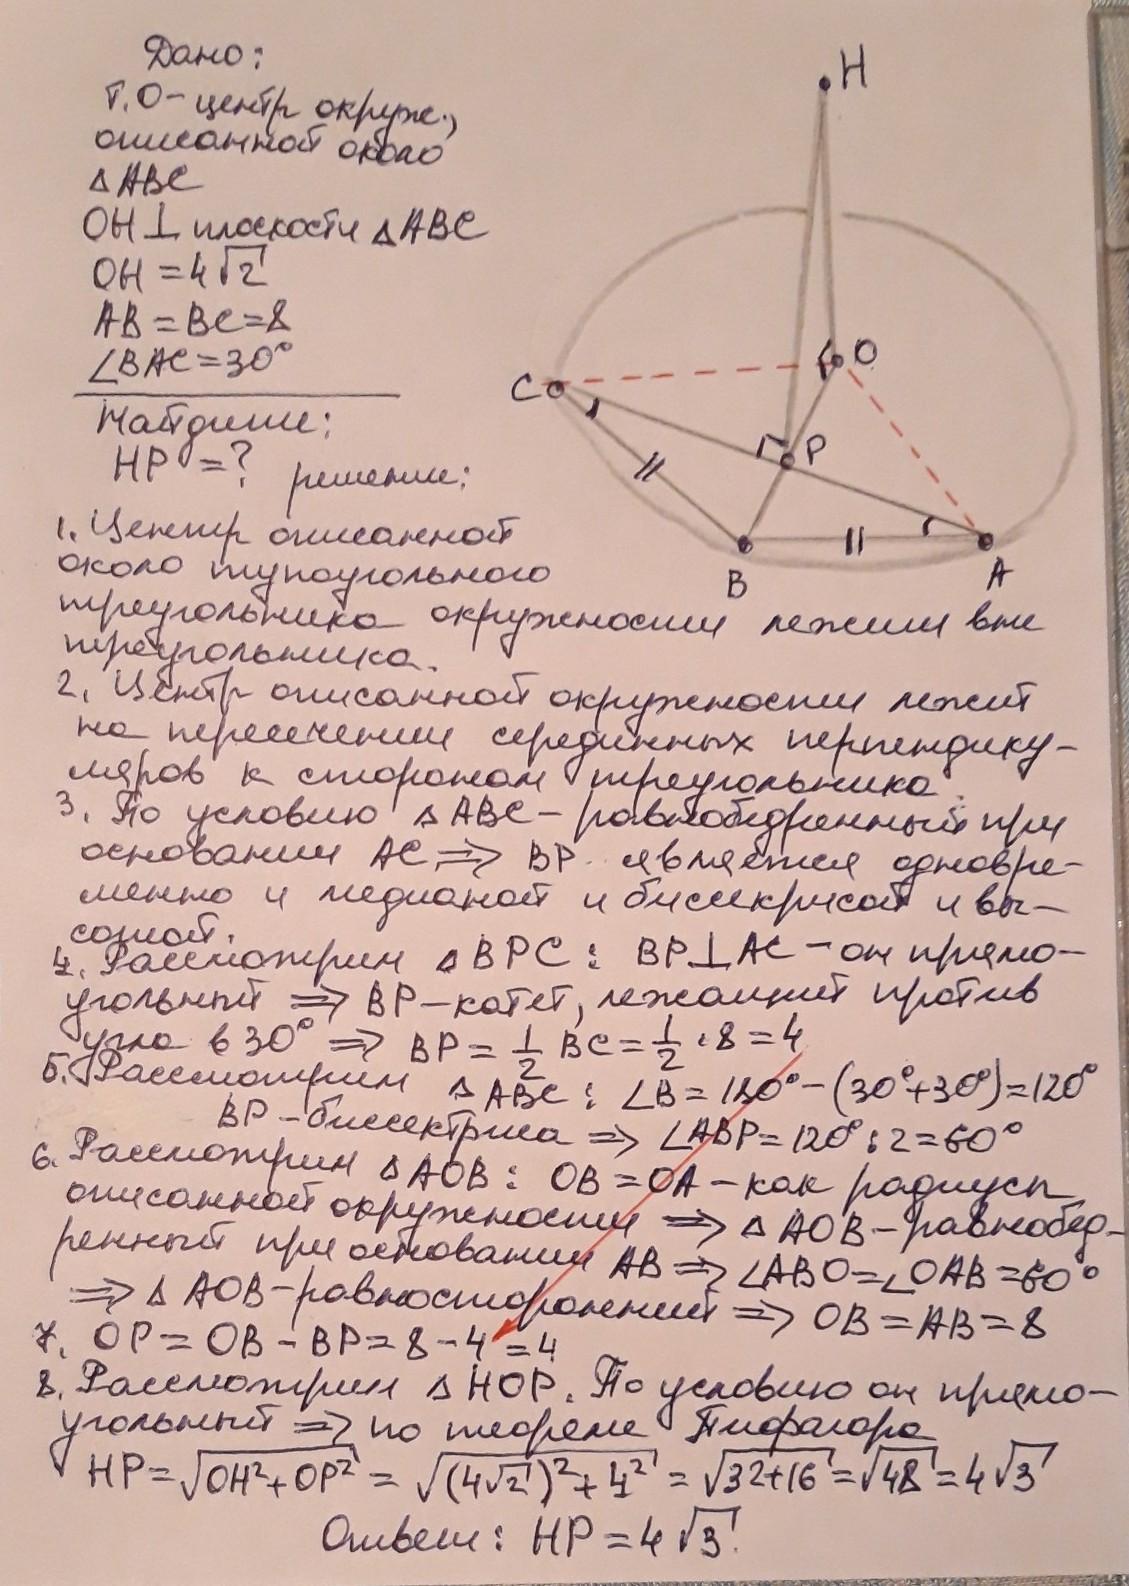 Дано:
т.О-центр окруж.,
описанной около
△ABC
OH⊥плоскости △ABC
OH=4√2
AB=BC=8
∠BAC=30°
Найдите:
HP=?
решение:
H
O
C
P
B
A
1. Центр описанной
около тупоугольного
треугольника окружности лежит вне
треугольника.
2. Центр описанной окружности лежит
на пересечении серединных перпендику-
ляров к сторонам треугольника.
3. По условию △ABC-равнобедренный при
основании AC⇒ BP является одновре-
менно и медианой и биссектрисой и вы-
сотой.
4. Рассмотрим △BPC: BP⊥AC-он прямо-
угольный ⇒ BP-катет, лежащий против
угла в 30° ⇒ BP=1/2 BC=1/2·8=4
5. Рассмотрим △ABC: ∠B=180°-(30°+30°)=120°
BP-биссектриса ⇒ ∠ABP=120°:2=60°
6. Рассмотрим △AOB: OB=OA-как радиусы
описанной окружности ⇒ △AOB-равнобед-
ренный при основании AB⇒ ∠ABO=∠OAB=60°
⇒ △AOB-равносторонний ⇒ OB=AB=8
7. OP=OB-BP=8-4=4
8. Рассмотрим △HOP. По условию он прямо-
угольный ⇒ по теореме Пифагора
HP=√(OH²+OP²)=√((4√2)²+4²)=√(32+16)=√48=4√3
Ответ: HP=4√3.